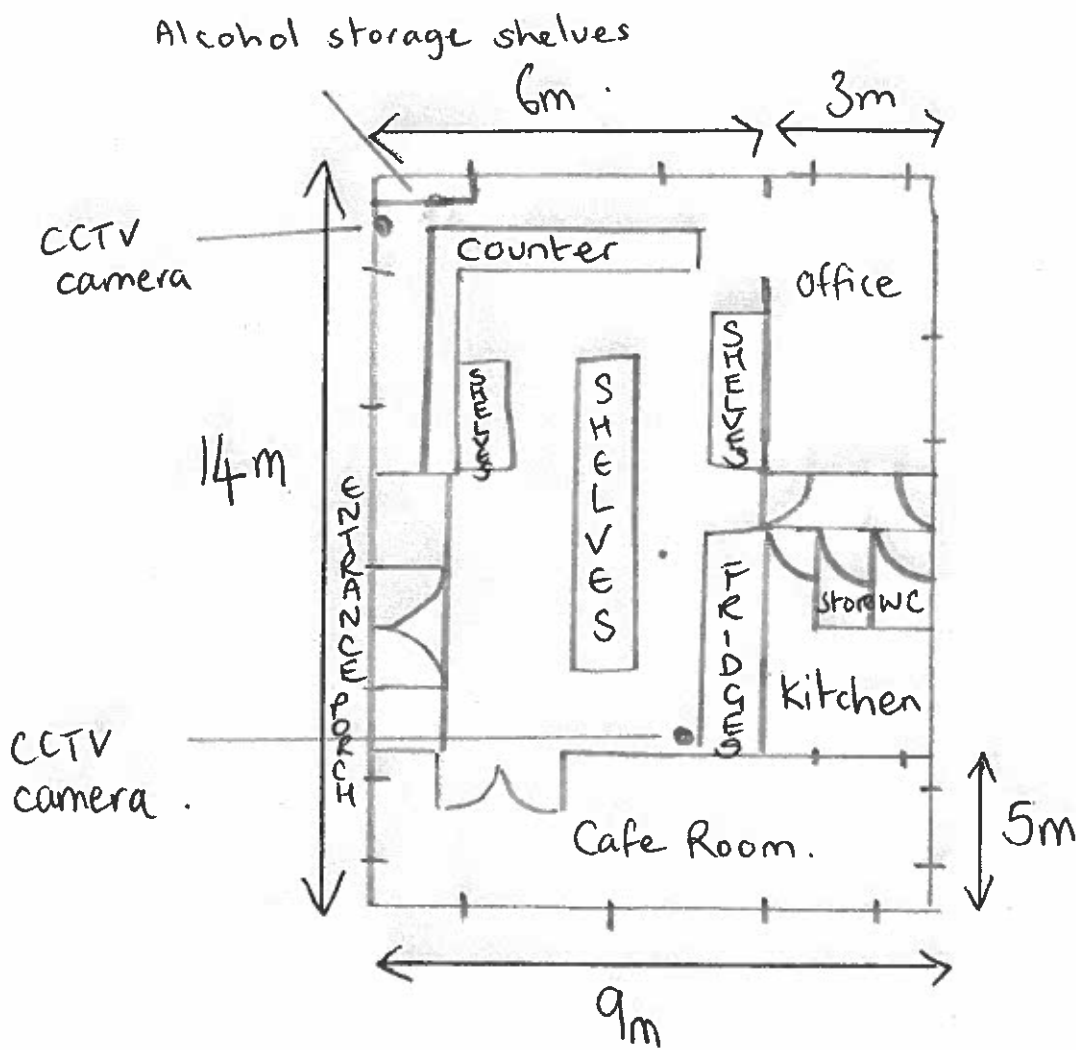 Alcohol storage shelves
6m.
3m
CCTV
camera
Counter
Office
SHELVES
SHELVES
SHELVES
14m
ENTRANCE PORCH
FRIDGES
Store
WC
Kitchen
CCTV
camera.
Cafe Room.
5m
9m